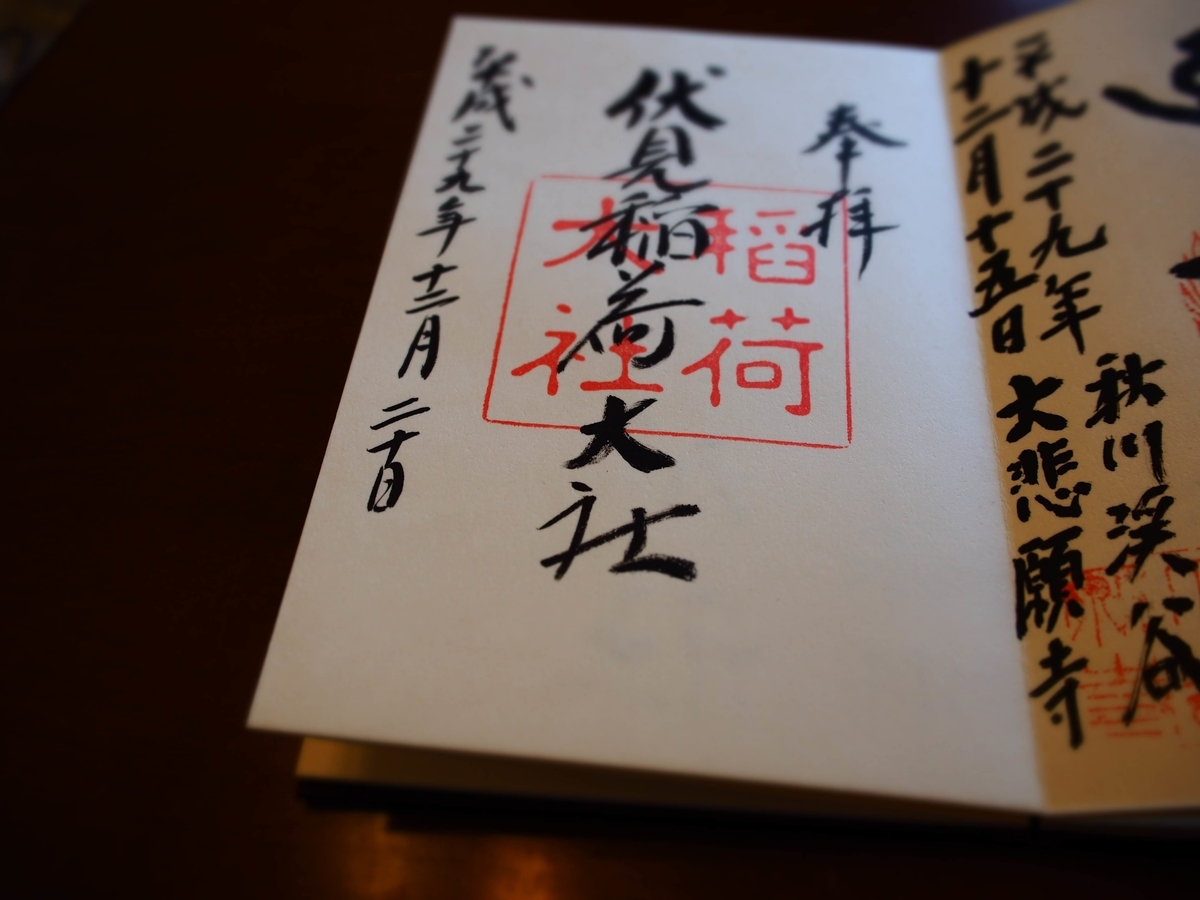 秋川渓谷
平成二十九年
十二月十五日 大悲願寺
奉拝
伏見稲荷大社
稲荷
大社
平成二十九年十二月二十日